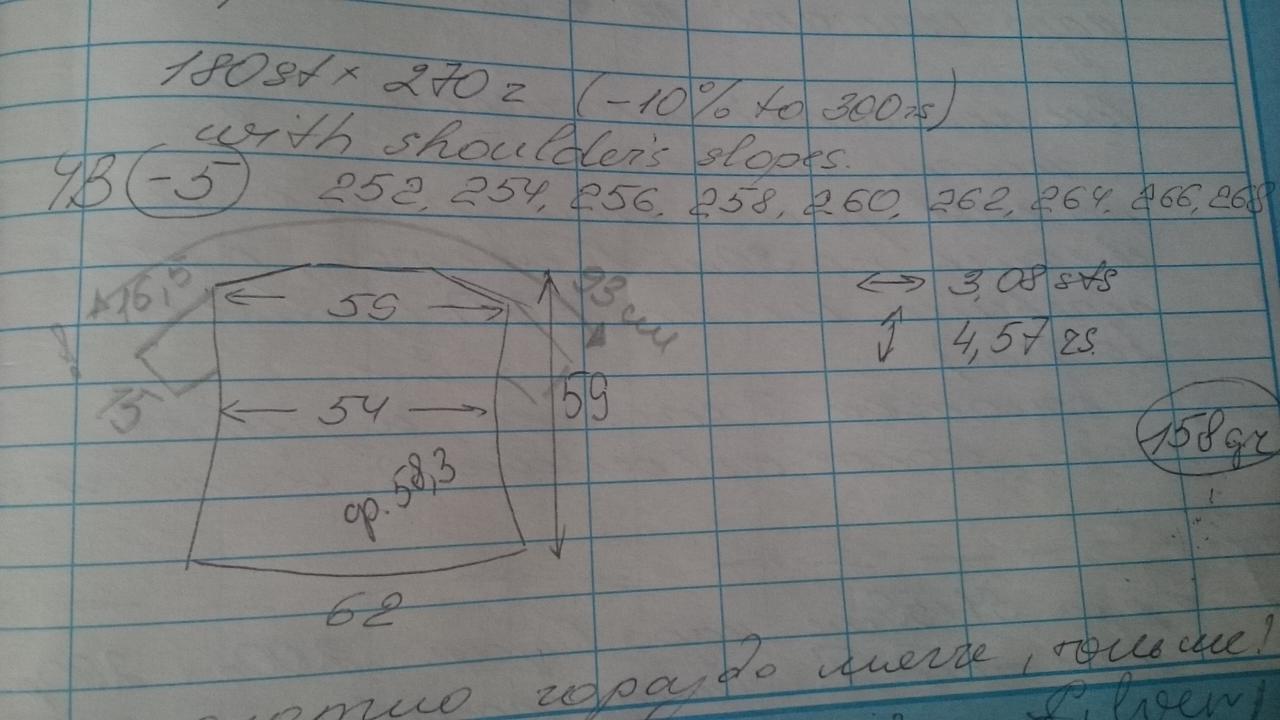 180st x 270 r (-10% to 300rs)
with shoulder's slopes.
ЧВ -5 252, 254, 256, 258, 260, 262, 264, 266, 268
16,5 59 93 см
5 54 59
ср. 58,3
62
↔ 3,08 sts
↕ 4,57 rs.
158gr
гораздо мягче, тоньше!